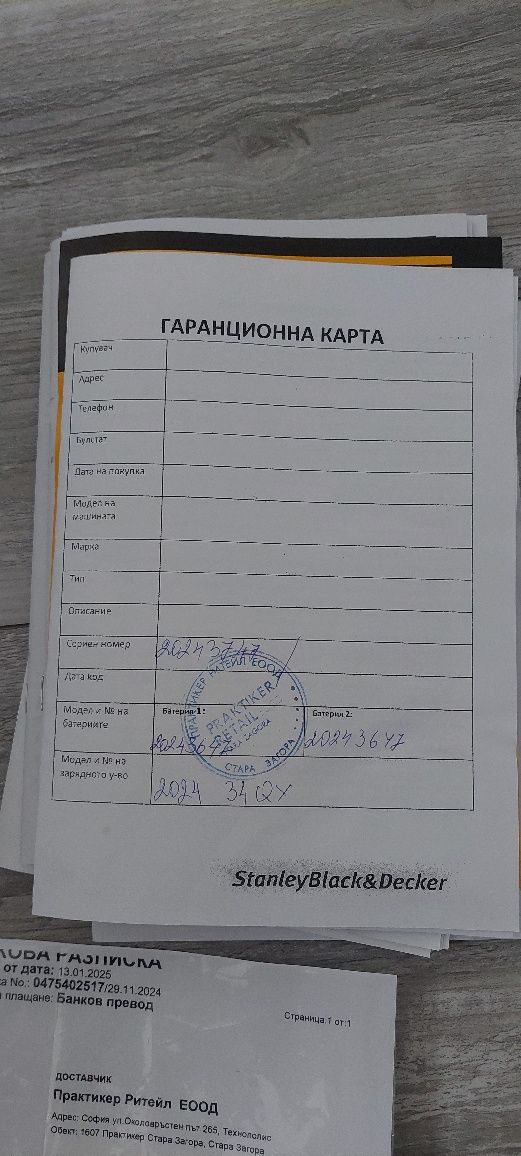 ГАРАНЦИОННА КАРТА
Купувач
Адрес
Телефон
Булстат
Дата на покупка
Модел на машината
Марка
Тип
Описание
Сериен номер
Дата код
ПРАКТИКЕР РИТЕЙЛ ЕООД
PRAKTIKER
RETAIL
STARA ZAGORA
СТАРА ЗАГОРА
Модел и № на батериите
Батерия 1:
Батерия 2:
2024 36 47
Модел и № на зарядното у-во
2024
StanleyBlack&Decker
РАЗПИСКА
от дата: 13.01.2025
No.: 0475402517/29.11.2024
плащане: Банков превод
Страница:1 от:1
ДОСТАВЧИК
Практикер Ритейл ЕООД
Адрес: София ул.Околовръстен път 265, Технополис
Обект: 1607 Практикер Стара Загора, Стара Загора